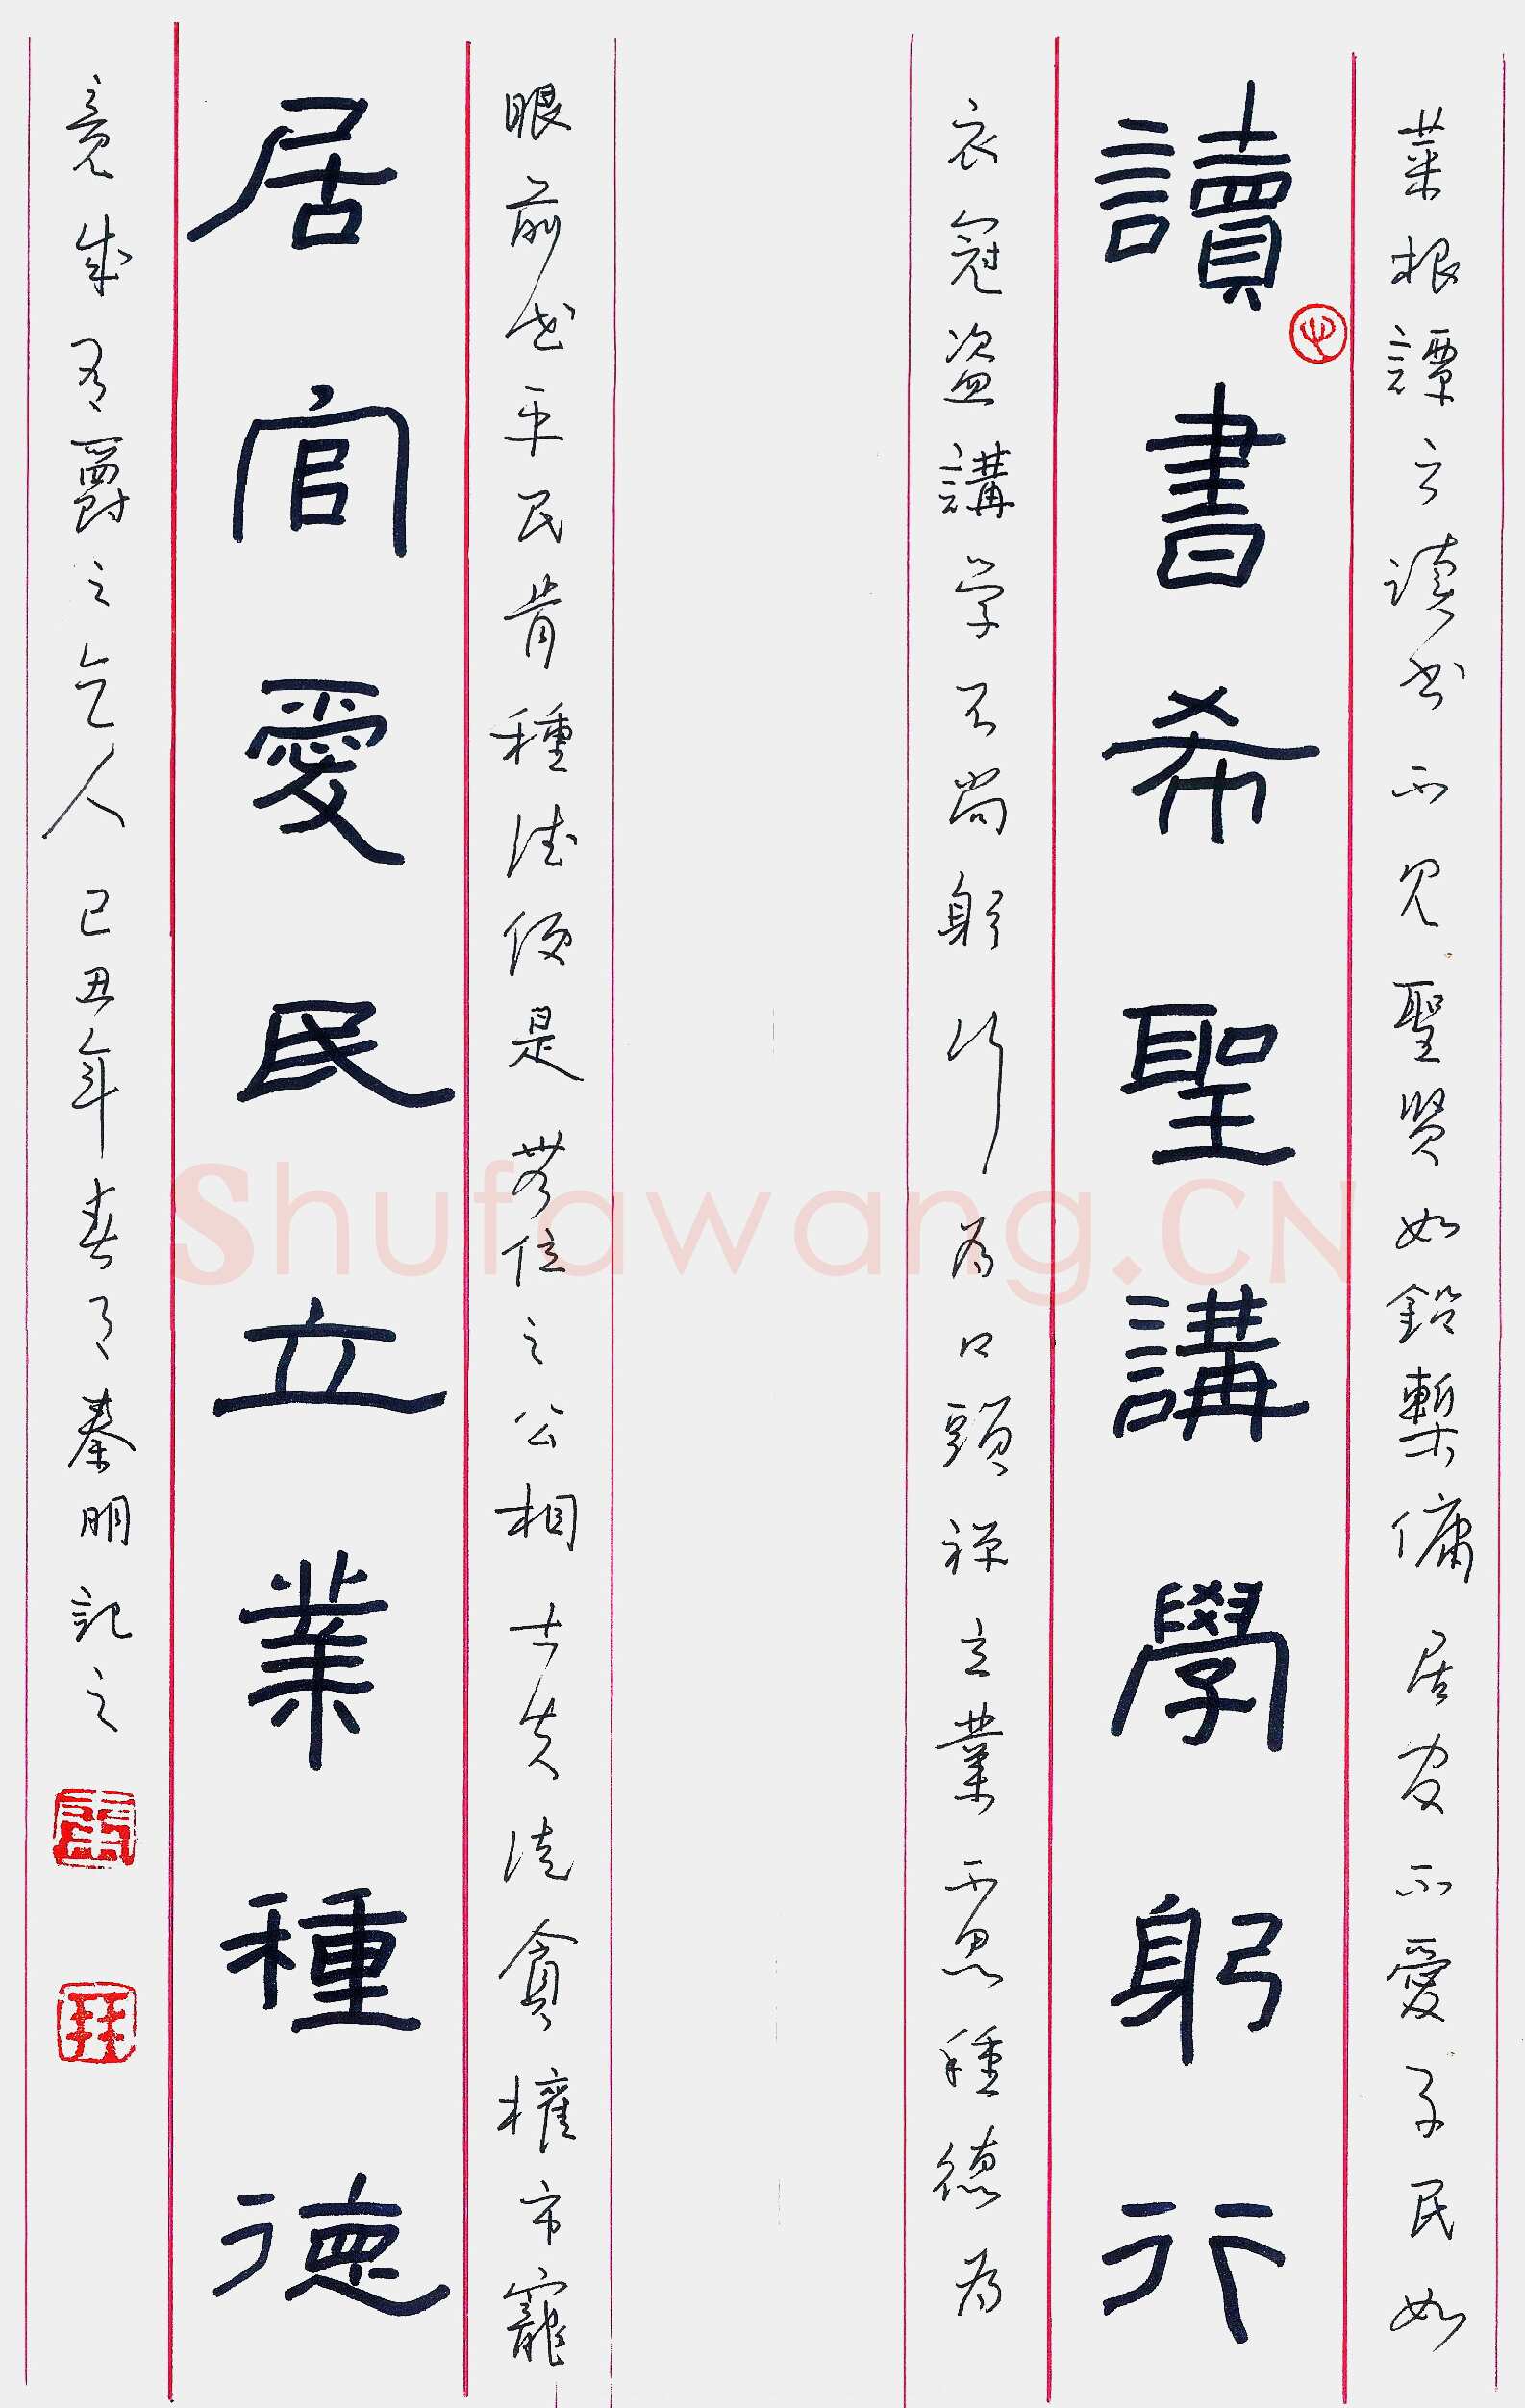 菜根譚云读书不见聖贤如鉛槧傭居官不愛子民如
讀書希聖講學躬行
衣冠盗講学不尚躬行为口頭禅立業不思種德为
眼前花平民肯種德便是無位之公相士夫徒貪權市寵
居官愛民立業種德
竟成有爵之乞人己丑年春月秦明記之
Shufawang.CN